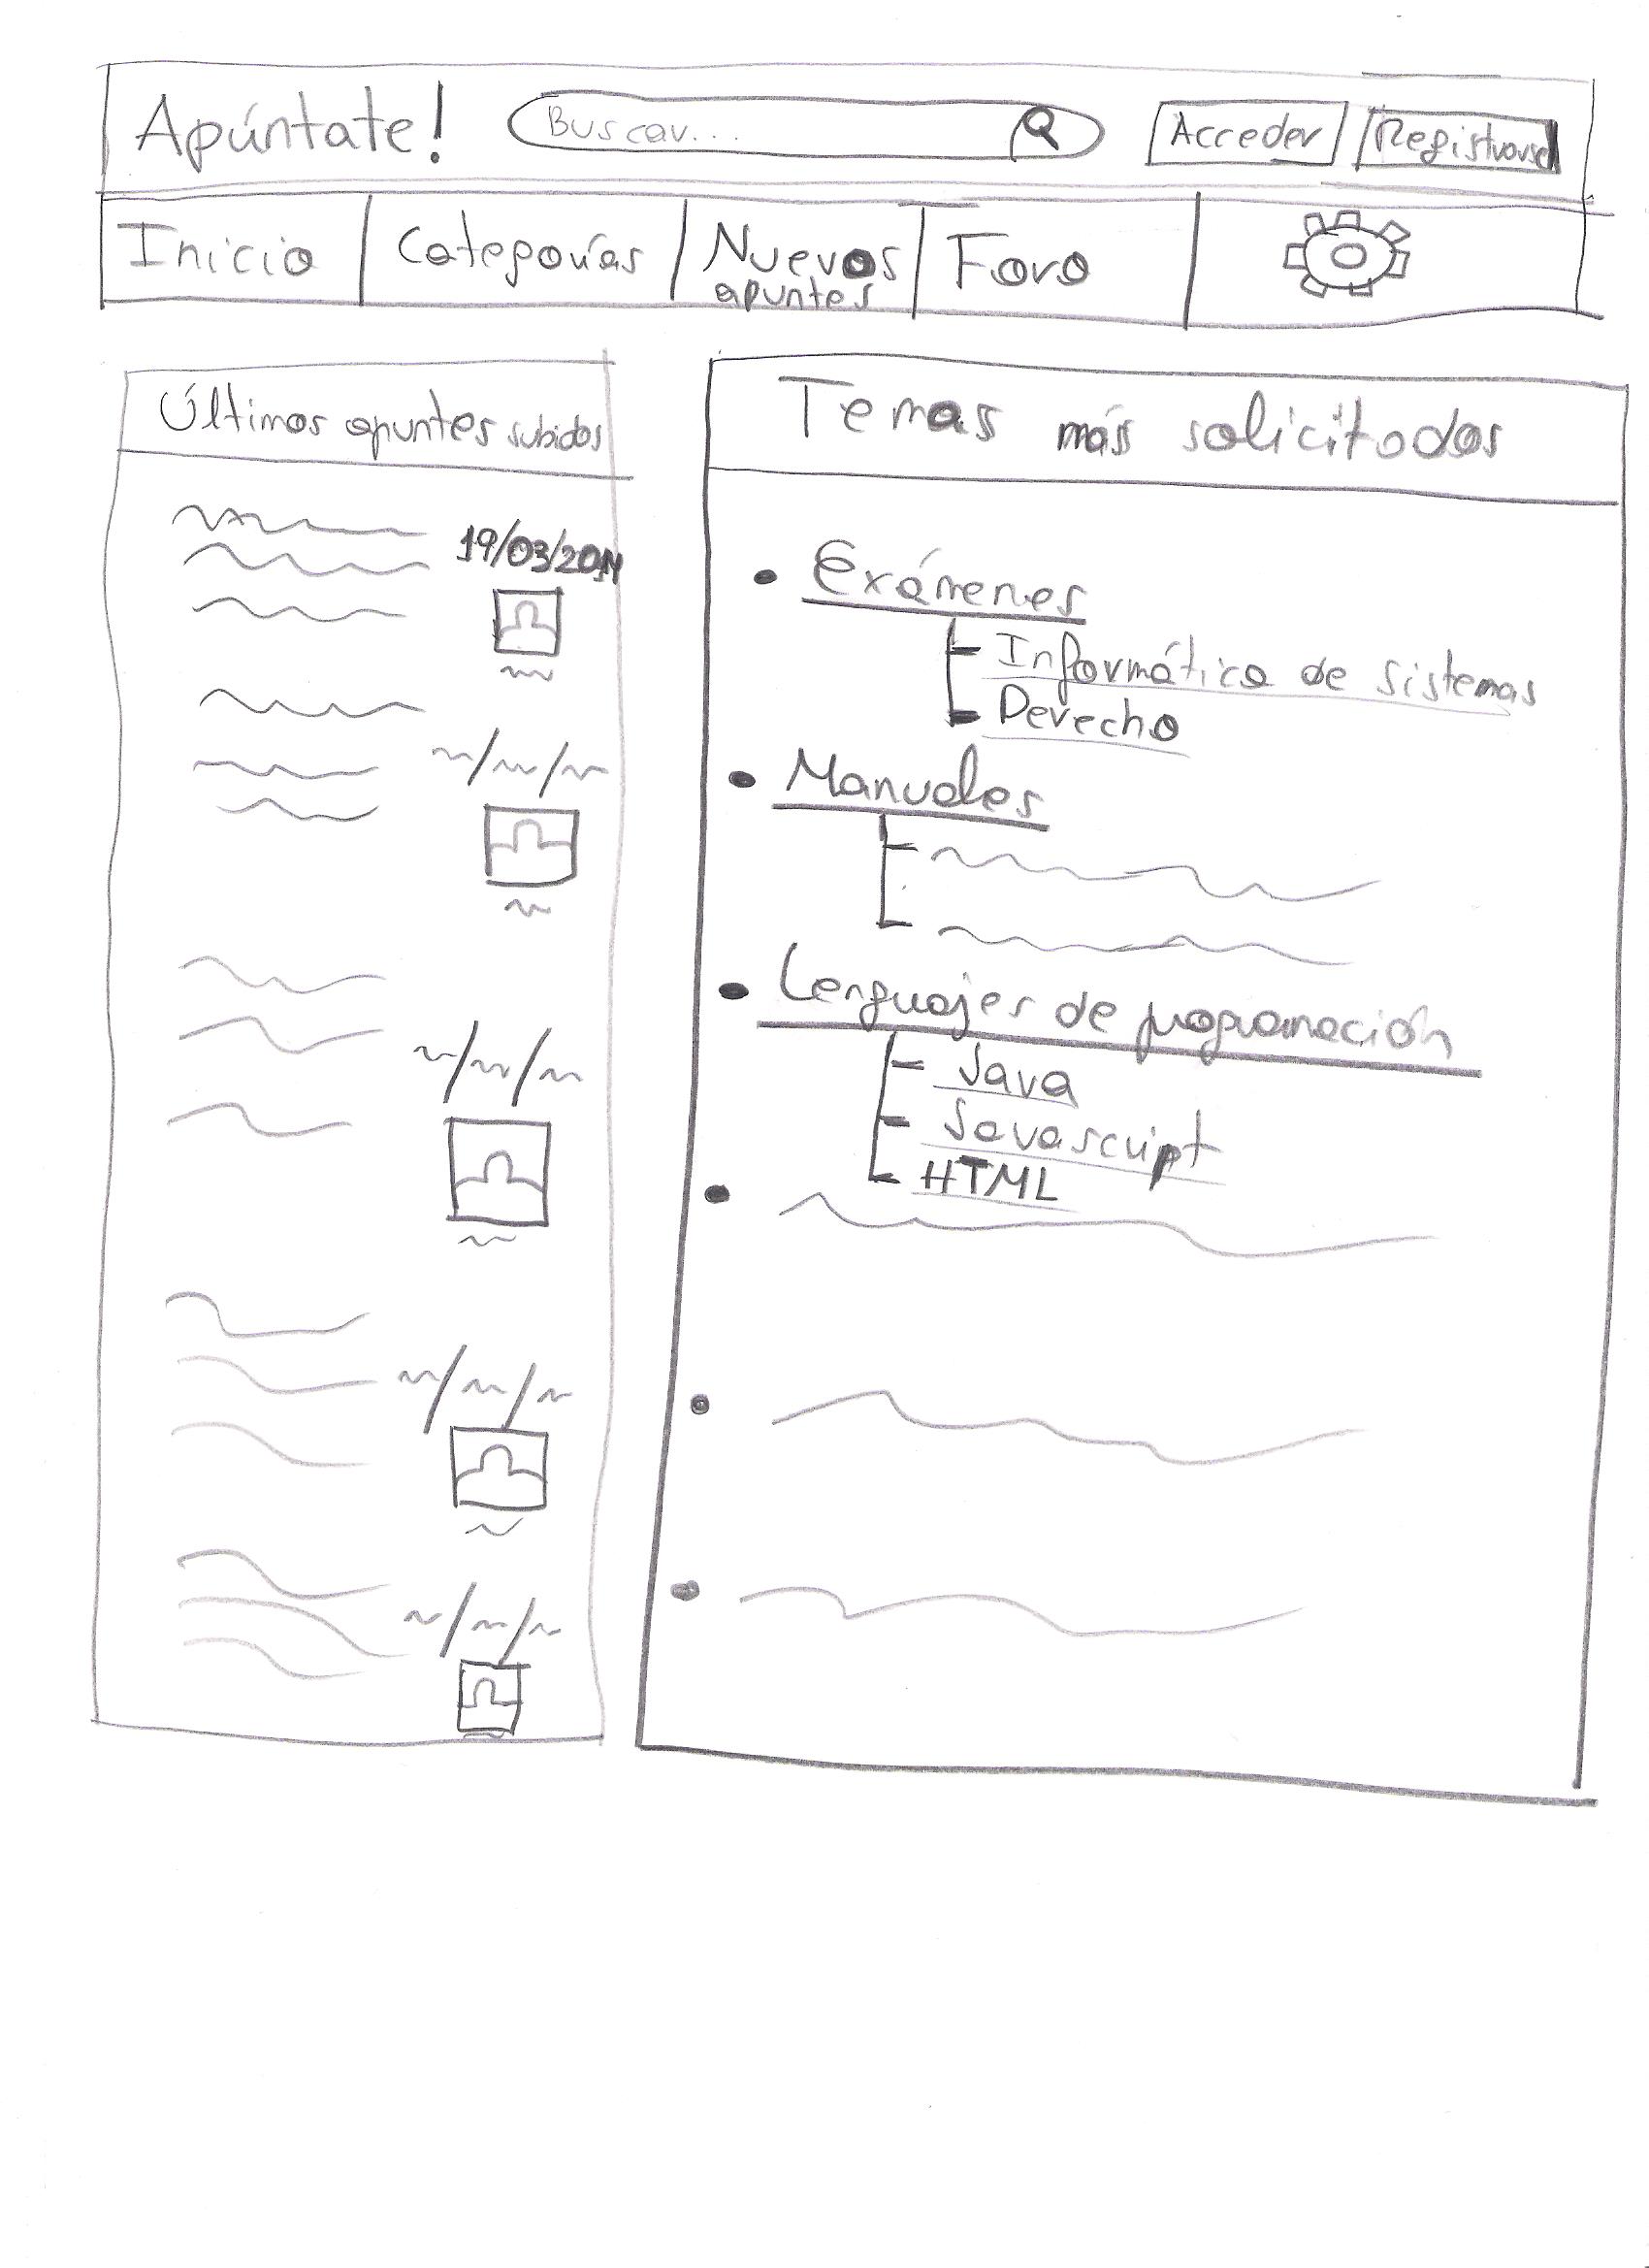 Apúntate!
Buscar...
Acceder
Registrarse
Inicio
Categorías
Nuevos
apuntes
Foro
Últimos apuntes subidos
19/03/2011
Temas más solicitados
Exámenes
Informática de sistemas
Derecho
Manuales
Lenguajes de programación
Java
Javascript
HTML